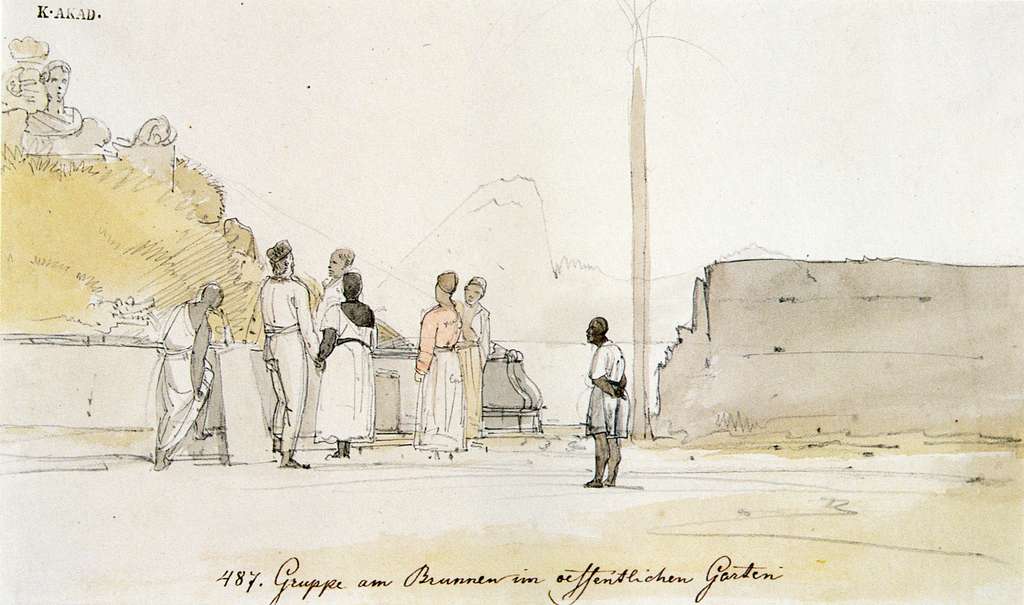 K·AKAD.
487. Gruppe am Brunnen im oeffentlichen Garten